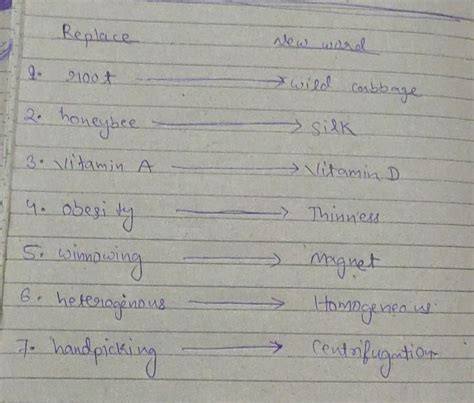 Replace New word
1. root → wild cabbage
2. honeybee → Silk
3. Vitamin A → Vitamin D
4. obesity → Thinness
5. winnowing → Magnet
6. heteroginous → Homogeneous
7. handpicking → Centrifugation